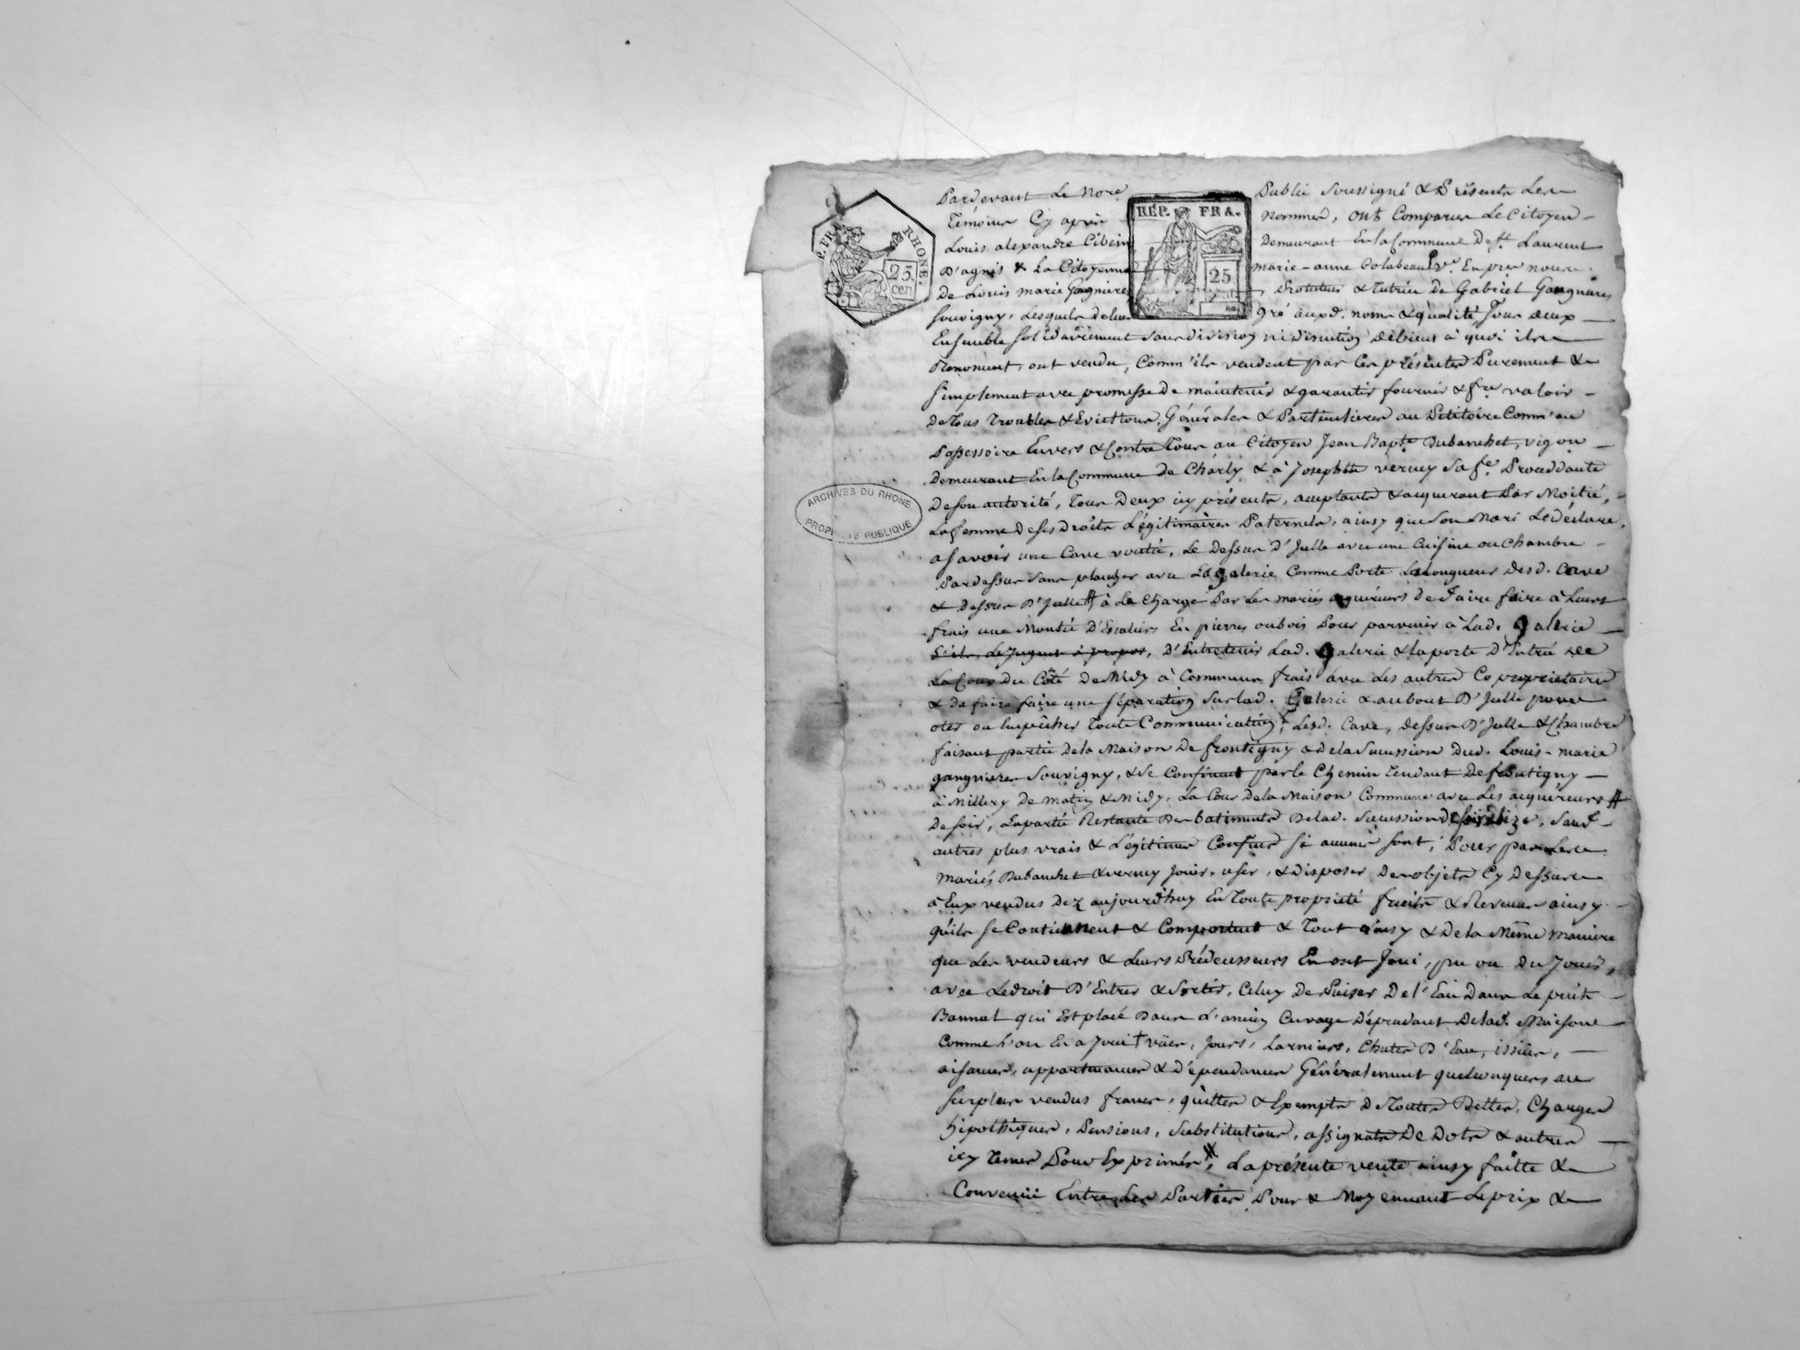 Pardevant Le Nore Public soussigné & Présents Les
Témoins Cy après nommés, ont Comparus Le Citoyen
Louis alexandre Demeurant En la Commune De st. Laurent
D'agnis & La Citoyenne marie-anne Colabeau ve. En
de Louis marie Gangnieres & Tutrice de Gabriel Gangnieres
souvigny, Lesquels de leur gré aux d. noms & qualité Tous deux
Ensemble solidairement sans division ni discution de biens à quoi ils
Renoncent, ont vendu, Comm'ils vendent par Ces présentes Purement &
simplement avec promesse De maintenir & garantir fournir & fre valoir
de Tous Troubles & Evictions, Générales & Particulieres au Pétitoire Comm'au
Possessoire Envers & Contre Tous au Citoyen Jean Bapte. Dubanchet, vigon
Demeurant En la Commune de Charly & à Josephte verney Sa fe. Procédante
De son autorité, Tous Deux icy présents, acceptants & acquerant Par Moitié,
La femme De ses Droits Légitimaires Paternels, ainsy que Son Mari Le déclare,
a savoir une Cave voutée, Le Dessus D'Icelle avec une Cuisine ou Chambre
Par dessus sans plancher avec La galerie Comme Porte La Longueur Des d. Cave
& dessus D'Icelle # à La Charge Par Les mariés acquéreurs de Faire faire à Leurs
frais une Montée D'Escaliers En pierres ou bois Pour parvenir à Lad. galerie
S'ils Le Jugent à propos, D'Entretenir Lad. galerie & la porte D'Entrée
La Cour du Côté De Midy à Communs frais avec Les autres Copropriétaires
& de faire faire une séparation Sur lad. Galerie & au bout D'Icelle pour
oter ou Empêcher Toute Communication, Lesd. Cave, dessus D'Icelle & Chambre
faisant partie de la Maison De frontigny & de la Succession Dud. Louis-marie
gangnieres Souvigny, & Se Confinent par le Chemin Tendant De frontigny
à Millery De matin & Midy, La Cour de la Maison Commune avec Les acquéreurs #
De soir, La partie Restante Des batiments De lad. Succession De bize, Sauf
autres plus vrais & Légitimes Confins si aucuns sont, Pour par Les
Mariés Dubanchet & verney Jouir, user, & disposer Des objets Cy Dessus
à Eux vendus Dez aujourd'huy En Toute propriété fruits & Revenus ainsy
qu'ils se Contiennent & Comportent & Tout ainsy & De la Même maniere
que Les vendeurs & Leurs Prédecesseurs En ont Joui, pu ou Du Jouir,
avec Le droit D'Entrer & Sortir, Celuy De Puiser De l'Eau Dans Le puits
Bannal qui Est placé Dans L'ancien Cuvage Dépendant De lad. Maison
Comme L'on En a Joui † vües, Jours, Larmiers, Chutes D'Eau, issües,
aisances, appartenances & dépendances Généralement quelconques au
surplus vendus francs, quittes & Exempts De Toutes Dettes, Charges
hipothèques, Pensions, Substitutions, assignats De Dots & autres
icy Tenus Pour Exprimés, La présente vente ainsy faitte &
Convenüe Entre Les Parties Pour & Moyennant Le prix &
RÉP. FRA.
25
P. FRA RHONE.
25
cen
ARCHIVES DU RHONE
PROPRIETE PUBLIQUE